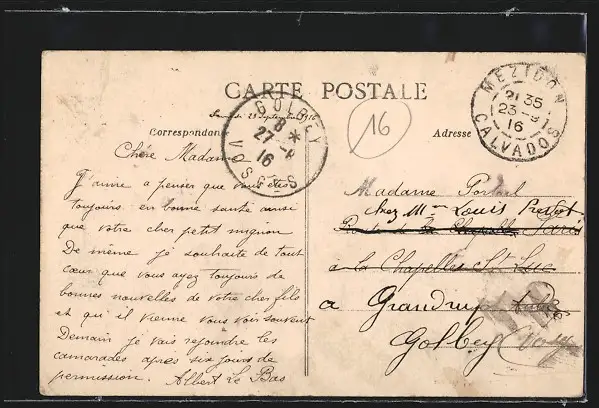 CARTE POSTALE
Samedi 23 septembre 1916
Correspondance
Adresse
GOLBEY
8 *
27-9
16
VOSGES
16
MEZIDON
21 35
23-9
16
CALVADOS
Chère Madame
J'aime a penser que vous êtes
toujours en bonne santé ainsi
que votre cher petit mignon
De même je souhaite de tout
cœur que vous ayez toujours de
bonnes nouvelles de votre cher fils
et qu'il vienne vous voir souvent
Demain je vais rejoindre les
camarades apres six jours de
permission. Albert Le Bas
Madame
chez Mme Louis
Route de la Chapelle
à la Chapelle St Luc
a Grandrupt
Golbey Vosges